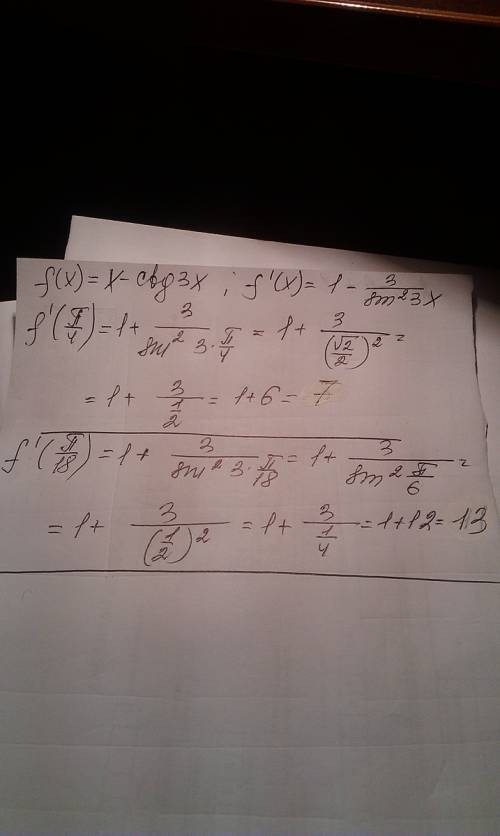 f(x) = x - ctg 3x ; f'(x) = 1 - 3/sin²3x
f'(π/4) = 1 + 3/(sin² 3·π/4) = 1 + 3/(√2/2)² =
= 1 + 3/(1/2) = 1+6 = 7
f'(π/18) = 1 + 3/(sin² 3·π/18) = 1 + 3/(sin² π/6) =
= 1 + 3/(1/2)² = 1 + 3/(1/4) = 1+12 = 13